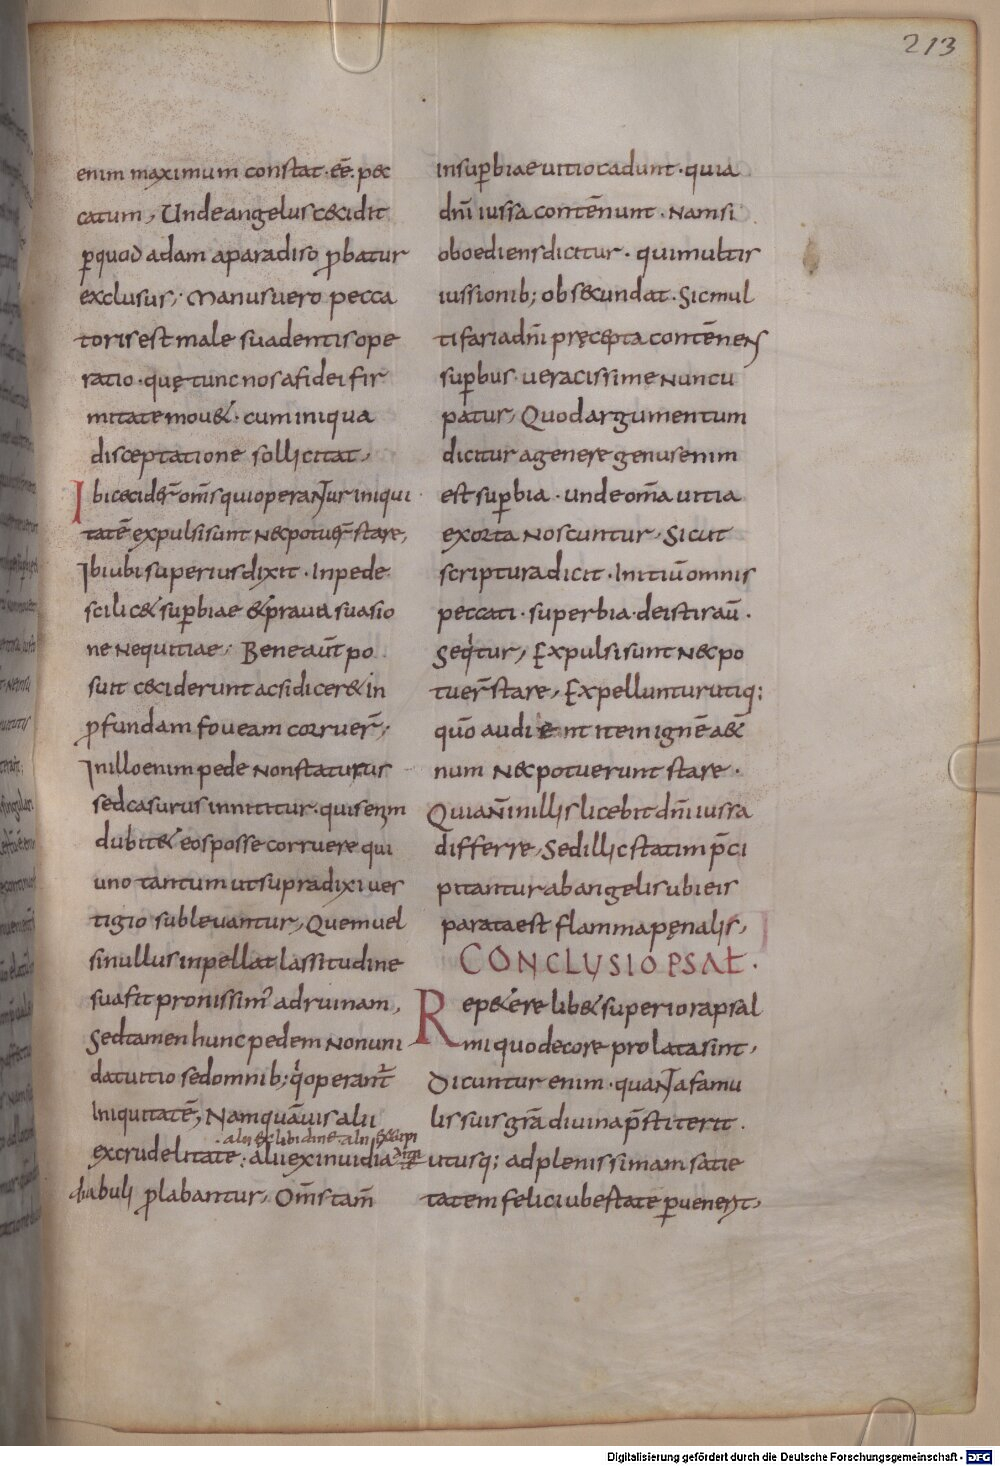 213
enim maximum constat · eē · pec
catum, Unde angelus cecidit
ꝑquod adam a paradiso ꝓbatur
exclusus; Manus uero pecca
toris est male suadentis ope
ratio · quę tunc nos a fidei fir
mitate mouet · cum iniqua
disceptatione sollicitat,
Ibi cecider̄ om̄s qui operantur iniqui
tatē expulsi sunt nec potuer̄ stare,
Ibi ubi superius dixit · In pede
scilicet suꝑbiae & praua suasio
ne nequitiae; Bene aūt po
suit ceciderunt ac si diceret in
ꝓfundam foueam corruer̄;
In illo enim pede non staturus
sed casurus innititur · quis enim
dubitet eos posse corruere qui
uno tantum ut supra dixi ues
tigio subleuantur, Quem uel
si nullus inpellat lassitudine
sua fit pronissim' ad ruinam,
Sed tamen hunc pedem non uni
dat uitio sed omnib; q̇ operant̄
iniquitatē, Nam quāuis alii
· alii & libidine alii
ex crudelitate · alii ex inuidia
diabuli ꝓlabantur, Om̄s tam̄
in suꝑbiae uitio cadunt · quia
dn̄i iussa contēnunt · Nam si
oboediens dicitur · qui multis
iussionib; obsecundat · Sic mul
tifaria dn̄i pręcepta contēnens
suꝑbus ueracissime nuncu
patur, Quod argumentum
dicitur a genere genus enim
est suꝑbia · unde om̄a uitia
exorta noscuntur, Sicut
scriptura dicit · Initiū omnis
peccati · superbia · de istis aū ·
Seq̇tur, Expulsi sunt nec po
tuer̄ stare, Expelluntur utiq;
quō audient ite in ignē aet̄
num nec potuerunt stare ·
Quia n̄ in illis licebit dn̄i iussa
differre, Sed illic statim p̄ci
pitantur ab angelis ubi eis
parata est flamma pęnalis,
CONCLUSIO PSAŁ ·
Repetere libet superiora psal
mi quo decore prolata sint,
Dicuntur enim · quanta famu
lis suis grā diuina p̄stiterit ·
utusq; ad plenissimam satie
tatem felici ubertate ꝑuenerit,
Digitalisierung gefördert durch die Deutsche Forschungsgemeinschaft · DFG